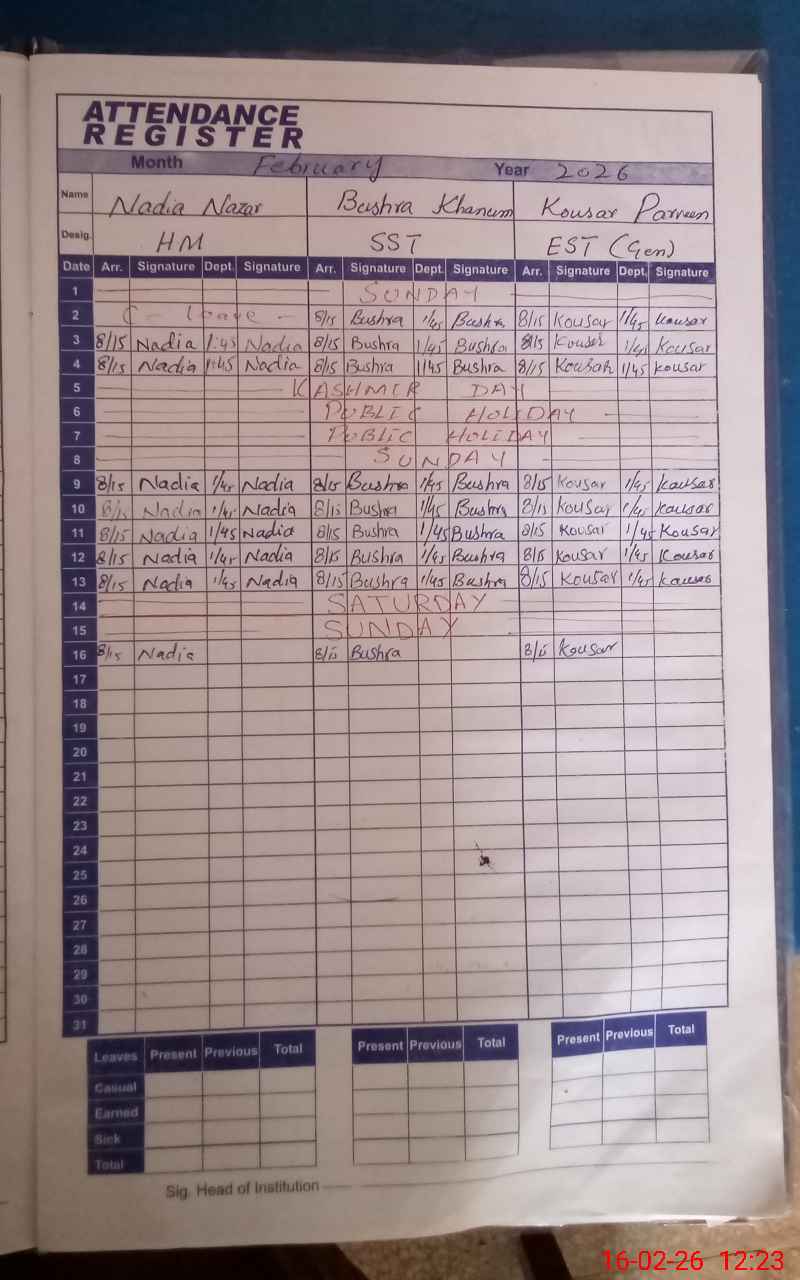 ATTENDANCE
REGISTER
Month February Year 2026
Name Nadia Nazar Bushra Khanum Kousar Parveen
Desig. HM SST EST (Gen)
Date Arr. Signature Dept. Signature Arr. Signature Dept. Signature Arr. Signature Dept. Signature
1 SUNDAY
2 C - leave - 8/15 Bushra 1/45 Bushra 8/15 Kousar 1/45 Kousar
3 8/15 Nadia 1:45 Nadia 8/15 Bushra 1/45 Bushra 8/15 Kousar 1/45 Kousar
4 8/15 Nadia 1:45 Nadia 8/15 Bushra 1/45 Bushra 8/15 Kousar 1/45 Kousar
5 KASHMIR DAY
6 PUBLIC HOLIDAY
7 PUBLIC HOLIDAY
8 SUNDAY
9 8/15 Nadia 1/45 Nadia 8/15 Bushra 1/45 Bushra 8/15 Kousar 1/45 Kousar
10 8/15 Nadia 1/45 Nadia 8/15 Bushra 1/45 Bushra 8/15 Kousar 1/45 Kousar
11 8/15 Nadia 1/45 Nadia 8/15 Bushra 1/45 Bushra 8/15 Kousar 1/45 Kousar
12 8/15 Nadia 1/45 Nadia 8/15 Bushra 1/45 Bushra 8/15 Kousar 1/45 Kousar
13 8/15 Nadia 1/45 Nadia 8/15 Bushra 1/45 Bushra 8/15 Kousar 1/45 Kousar
14 SATURDAY
15 SUNDAY
16 8/15 Nadia 8/15 Bushra 8/15 Kousar
17
18
19
20
21
22
23
24
25
26
27
28
29
30
31
Leaves Present Previous Total Present Previous Total Present Previous Total
Casual
Earned
Sick
Total
Sig. Head of Institution
16-02-26 12:23